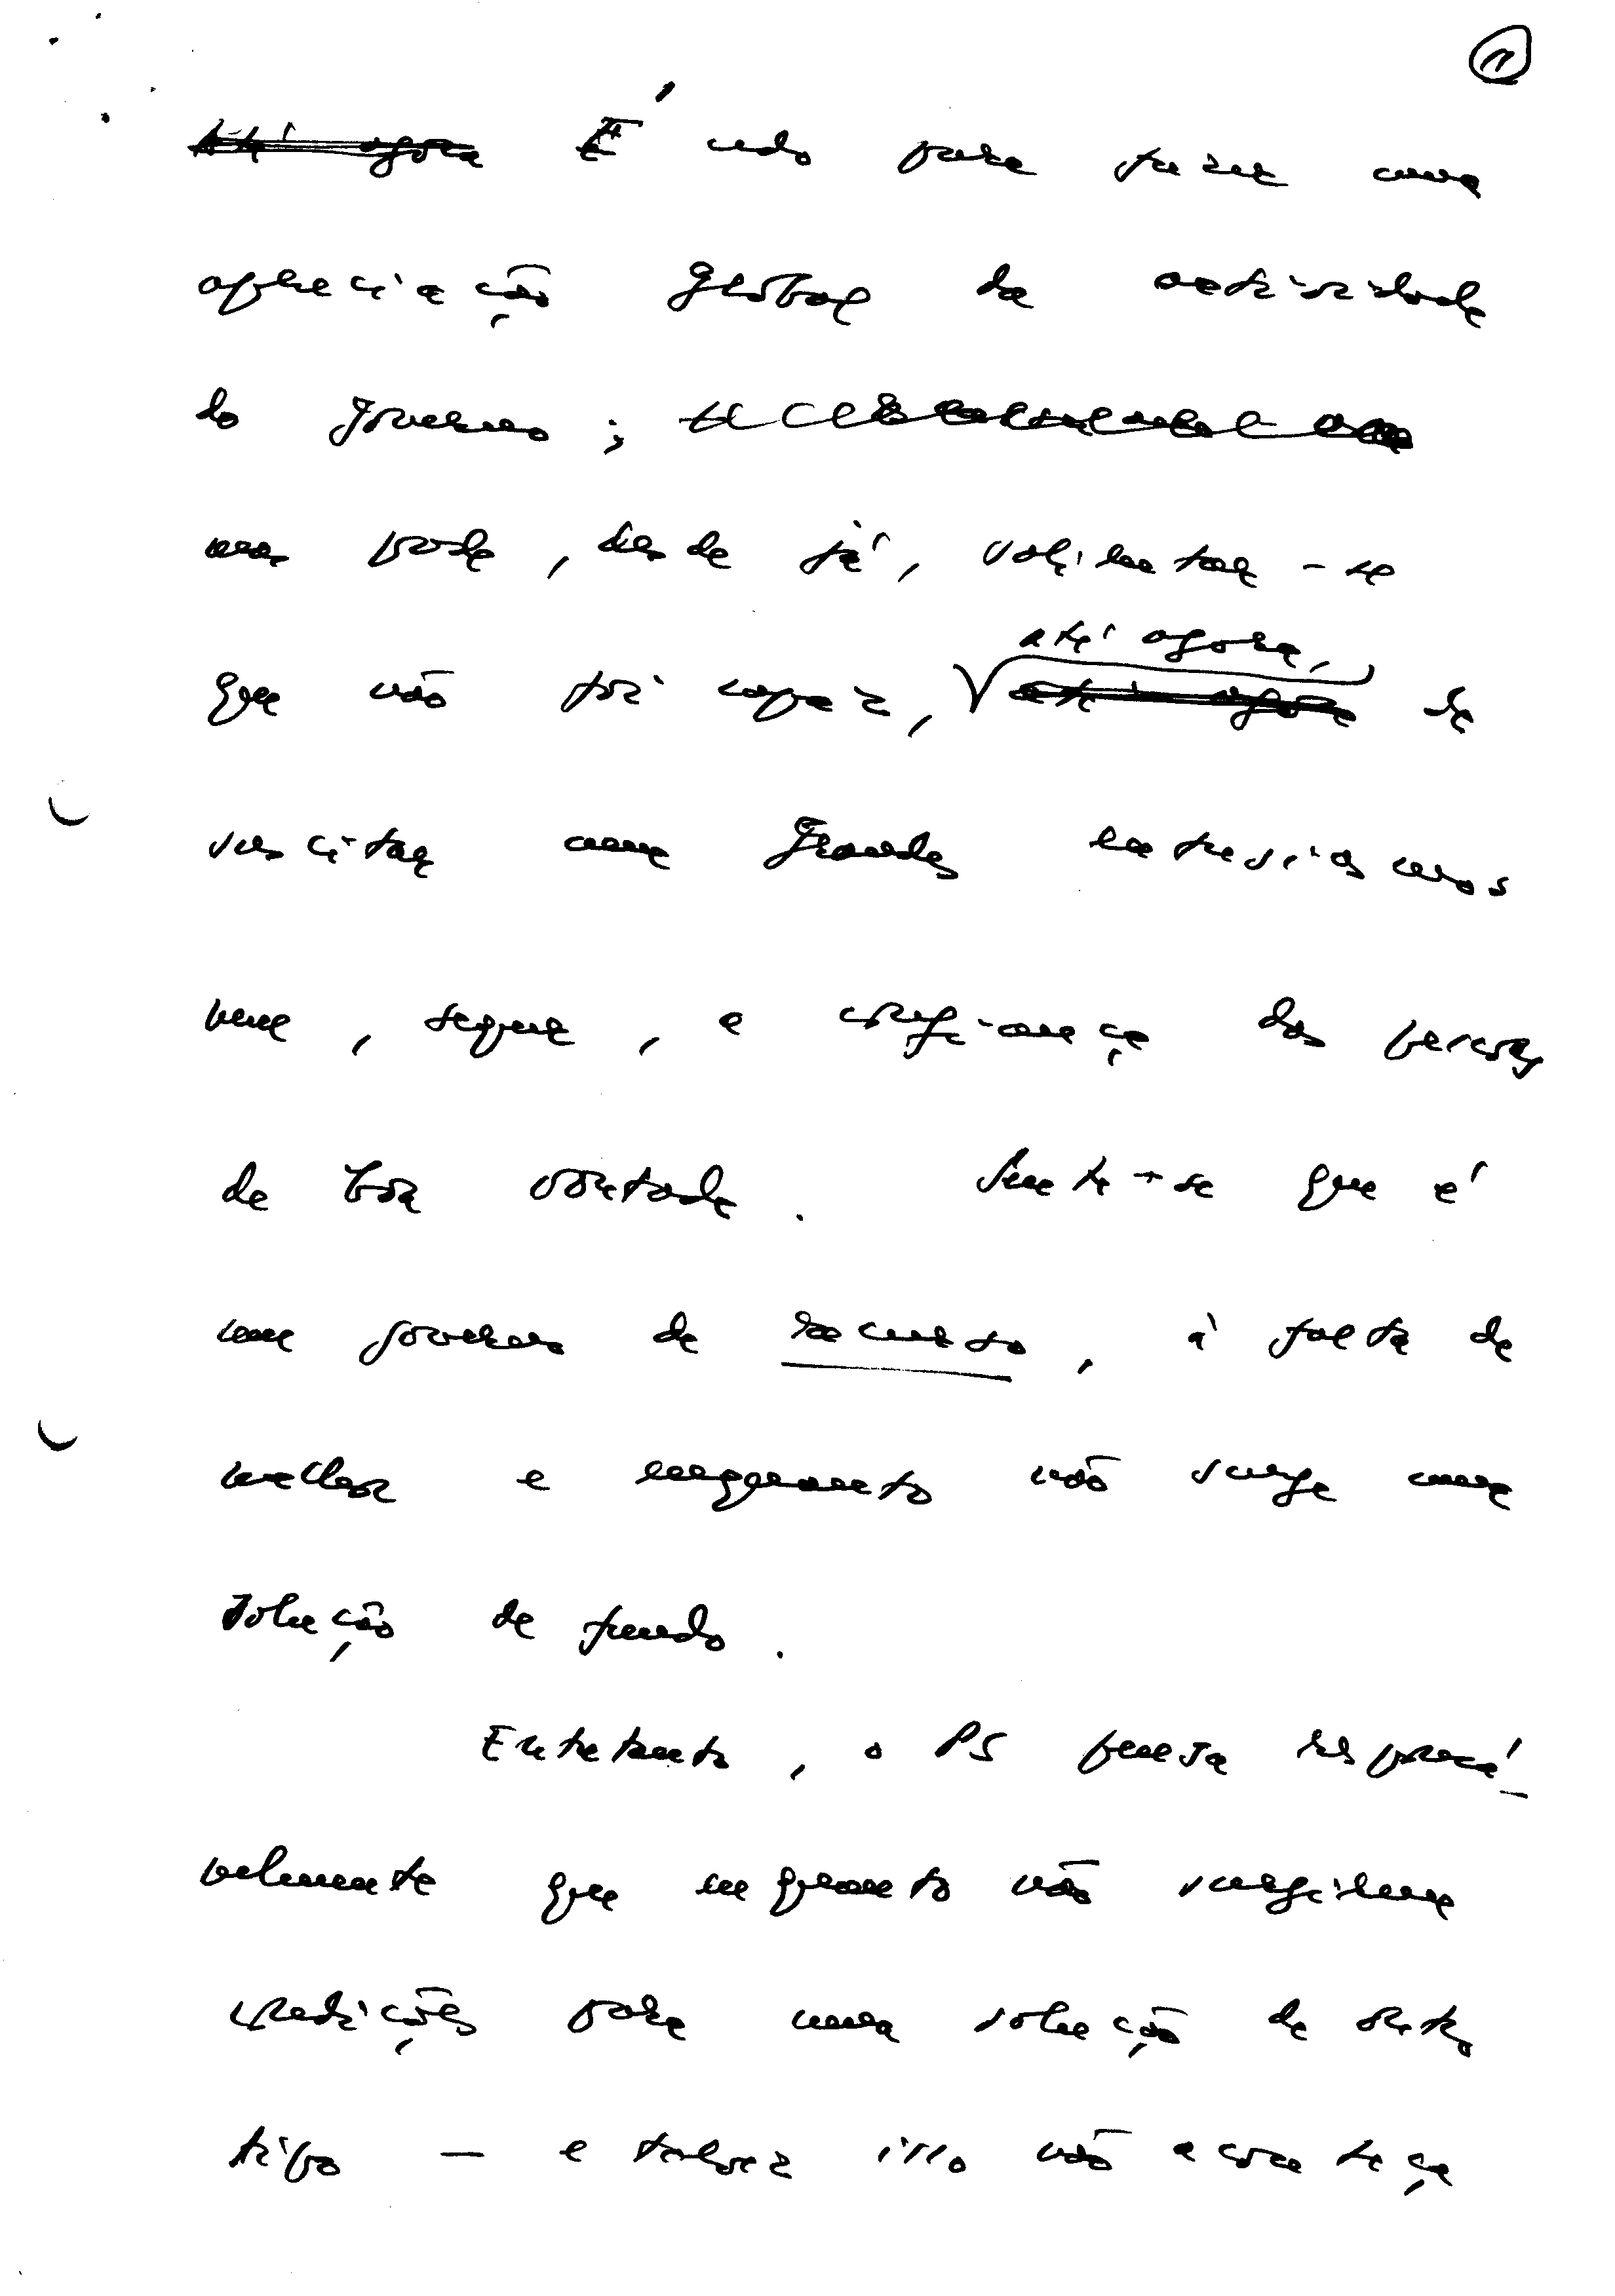 até agora É cedo para fazer uma
apreciação global da actividade
do governo;
mas pode, desde já, salientar-se
até agora,
que não foi capaz, até agora de
suscitar um grande entusiasmo
nem, sequer, a confiança das pessoas
de boa vontade. Sente-se que é
um governo de recurso, à falta de
melhor e enquanto não surge uma
solução de fundo.
Entretanto, o PS pensa respons횄á-
velmente que enquanto não surgirem
condições para uma solução de outro
tipo — e talvez isso não aconteça